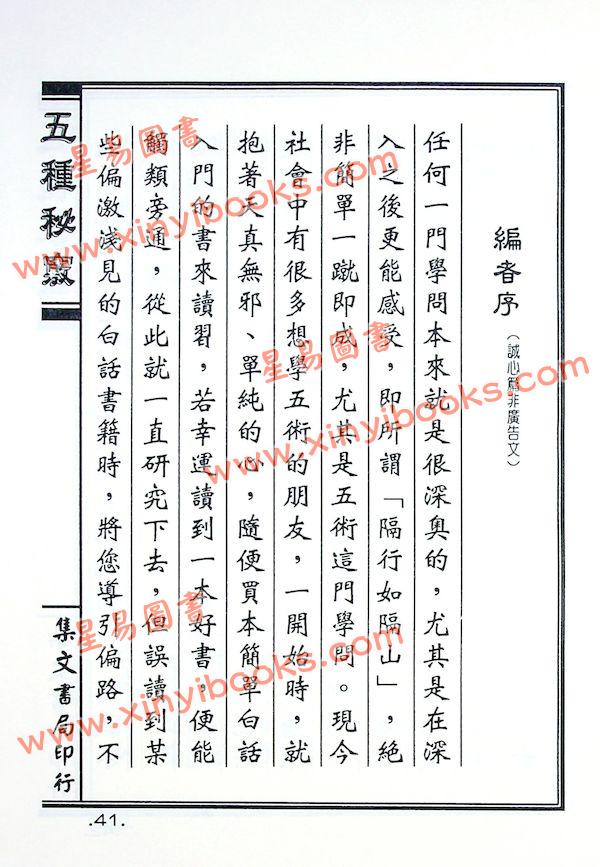 編者序
（誠心篇非廣告文）
任何一門學問本來就是很深奥的，尤其是在深
入之後更能感受，即所謂「隔行如隔山」，絕
非簡單一蹴即成，尤其是五術這門學問。現今
社會中有很多想學五術的朋友，一開始時，就
抱著天真無邪、單純的心，隨便買本簡單白話
入門的書來讀習，若幸運讀到一本好書，便能
觸類旁通，從此就一直研究下去，但誤讀到某
些偏激淺見的白話書籍時，將您導引偏路，不
五種秘竅
集文書局印行
.41.
星易圖書
www.xinyibooks.com
星易圖書
www.xinyibooks.com
星易圖書
www.xinyibooks.com